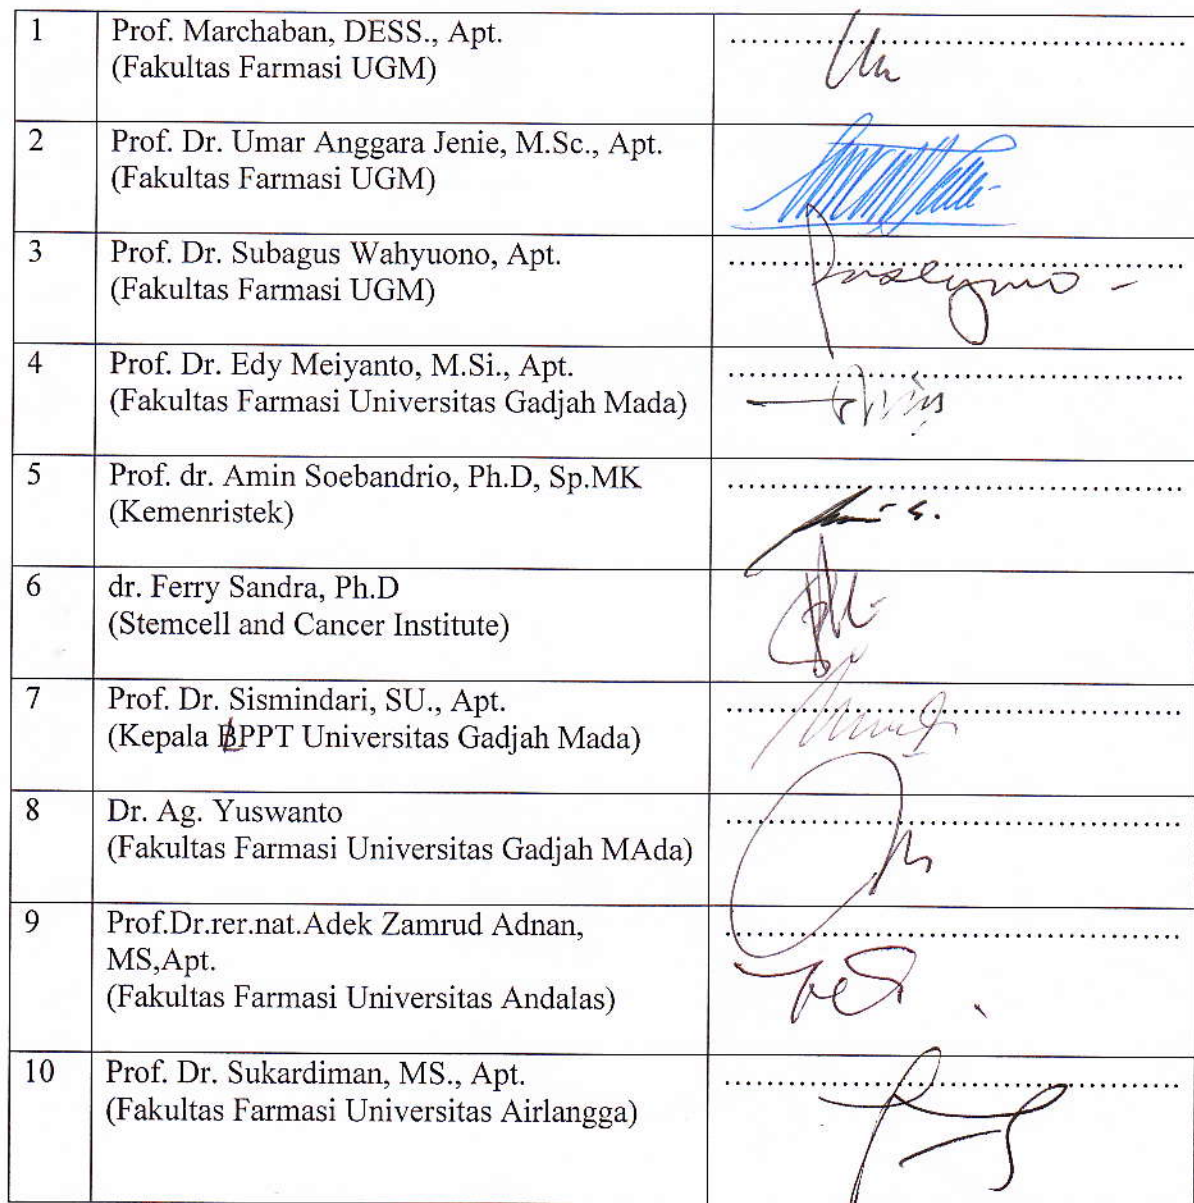 1 Prof. Marchaban, DESS., Apt.
(Fakultas Farmasi UGM)
2 Prof. Dr. Umar Anggara Jenie, M.Sc., Apt.
(Fakultas Farmasi UGM)
3 Prof. Dr. Subagus Wahyuono, Apt.
(Fakultas Farmasi UGM)
4 Prof. Dr. Edy Meiyanto, M.Si., Apt.
(Fakultas Farmasi Universitas Gadjah Mada)
5 Prof. dr. Amin Soebandrio, Ph.D, Sp.MK
(Kemenristek)
6 dr. Ferry Sandra, Ph.D
(Stemcell and Cancer Institute)
7 Prof. Dr. Sismindari, SU., Apt.
(Kepala LPPT Universitas Gadjah Mada)
8 Dr. Ag. Yuswanto
(Fakultas Farmasi Universitas Gadjah MAda)
9 Prof.Dr.rer.nat.Adek Zamrud Adnan,
MS,Apt.
(Fakultas Farmasi Universitas Andalas)
10 Prof. Dr. Sukardiman, MS., Apt.
(Fakultas Farmasi Universitas Airlangga)